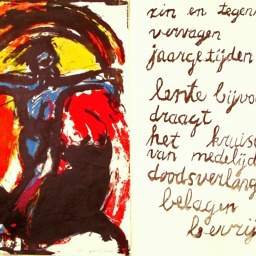 zin en tegen
vervagen
jaargetijden
lente bijvo
draagt
het kruis
van medelijd
doodsverlang
belagen
bevrij